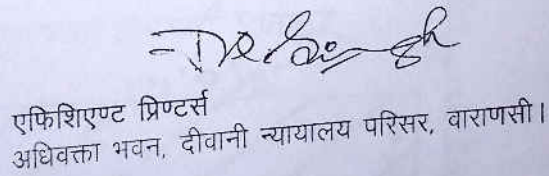 Singh
एफिशिएण्ट प्रिण्टर्स
अधिवक्ता भवन, दीवानी न्यायालय परिसर, वाराणसी।